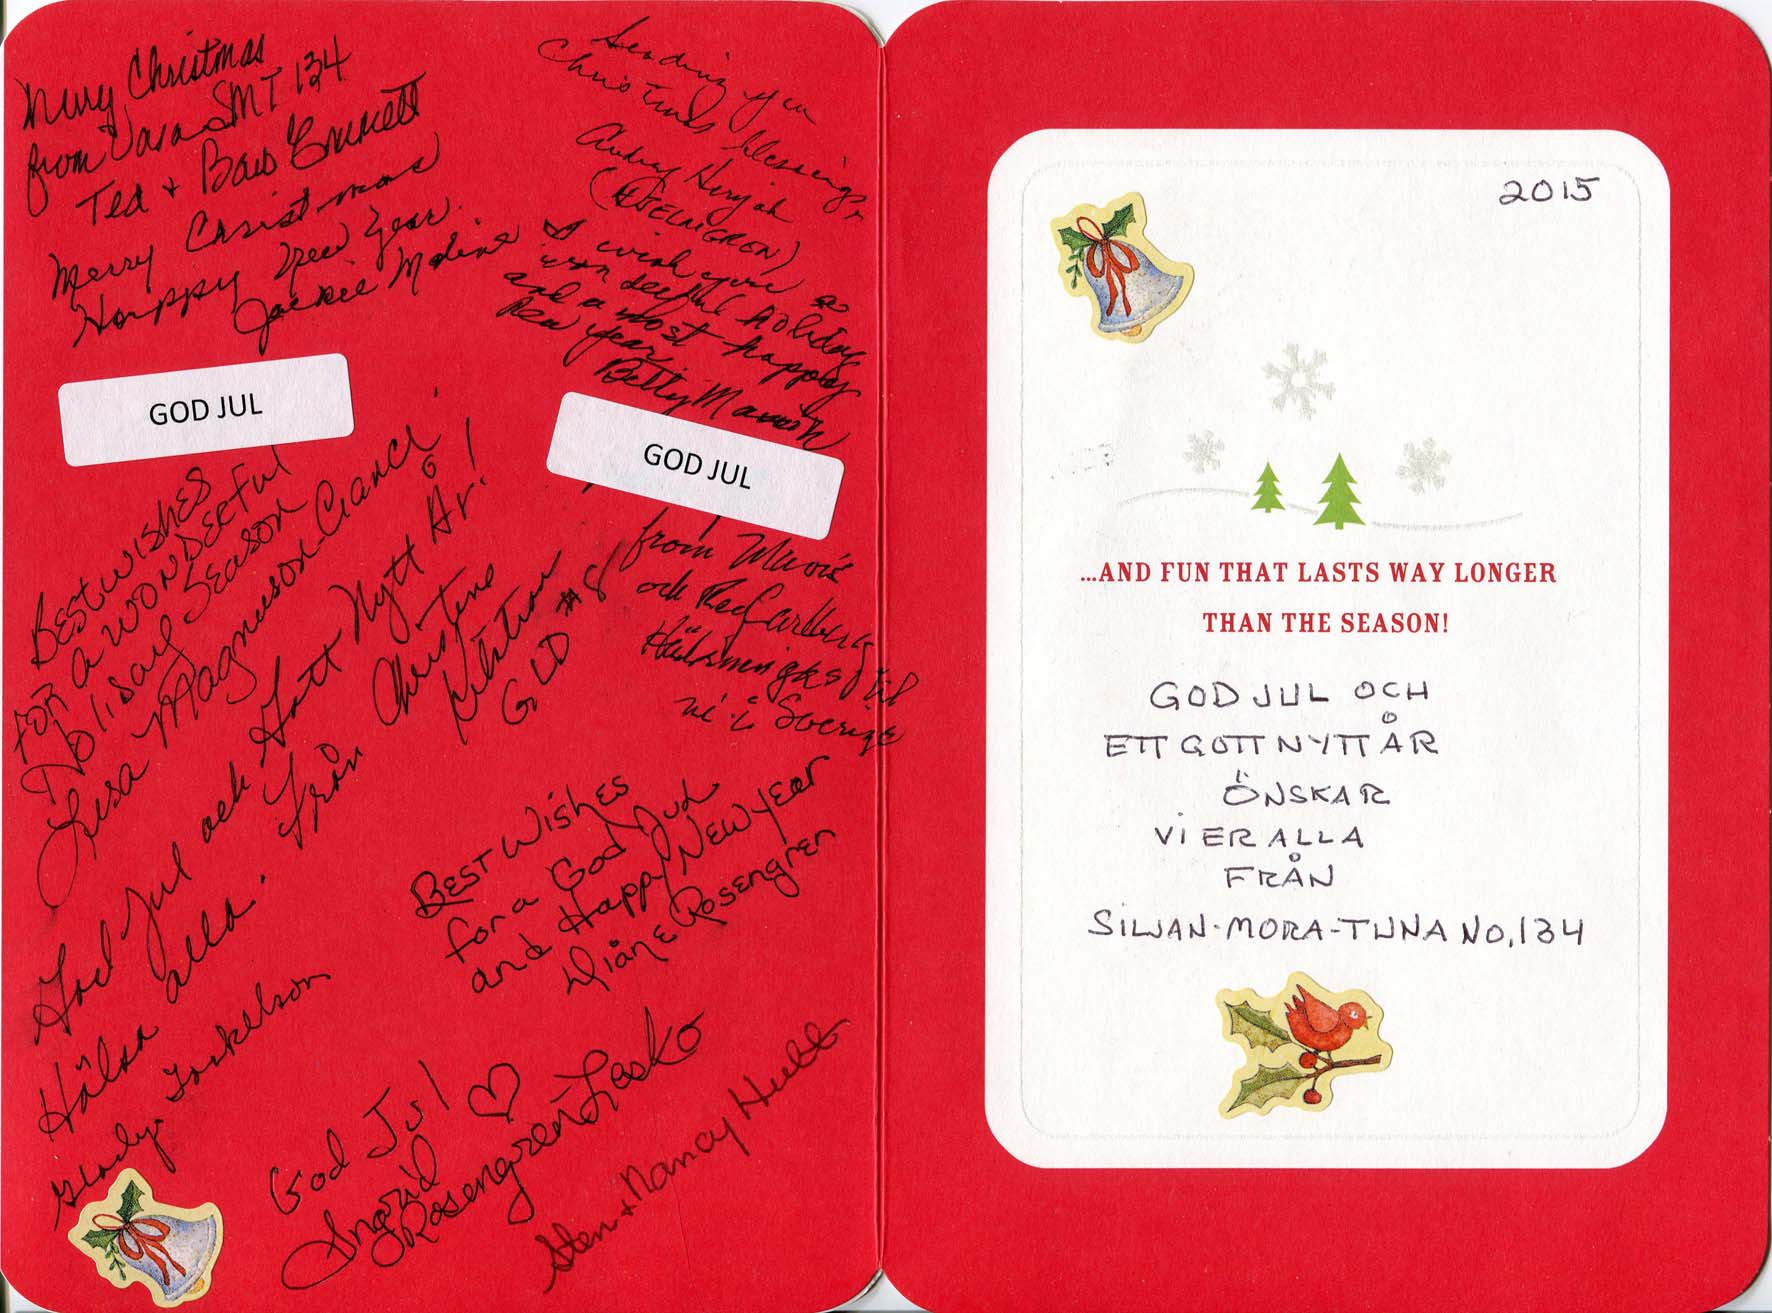 Merry Christmas
from Vasa SMT 134
Ted + Barb Emmett
Merry Christmas
Happy New Year
Jackie Moline
Sending you
Christmas blessings
Audrey
(SELLGREN)
I wish you a
wonderful holiday
and a most happy
New Year
Betty
GOD JUL
GOD JUL
Best wishes
for a wonderful
holiday season
Lisa Magnuson-Cianci
God Jul och Gott Nytt År!
Hälsa alla.
Från Christine
GLD #8
Gladys Torkelson
from
och Red Carlberg
till
ni i Sverige
Best Wishes
for a God Jul
and Happy New Year
Diane Rosengren
God Jul
Ingrid
Rosengren-Lesko
Sten + Nancy Hult
2015
...AND FUN THAT LASTS WAY LONGER
THAN THE SEASON!
GOD JUL OCH
ETT GOTT NYTT ÅR
ÖNSKAR
VI ER ALLA
FRÅN
SILJAN-MORA-TUNA NO. 134